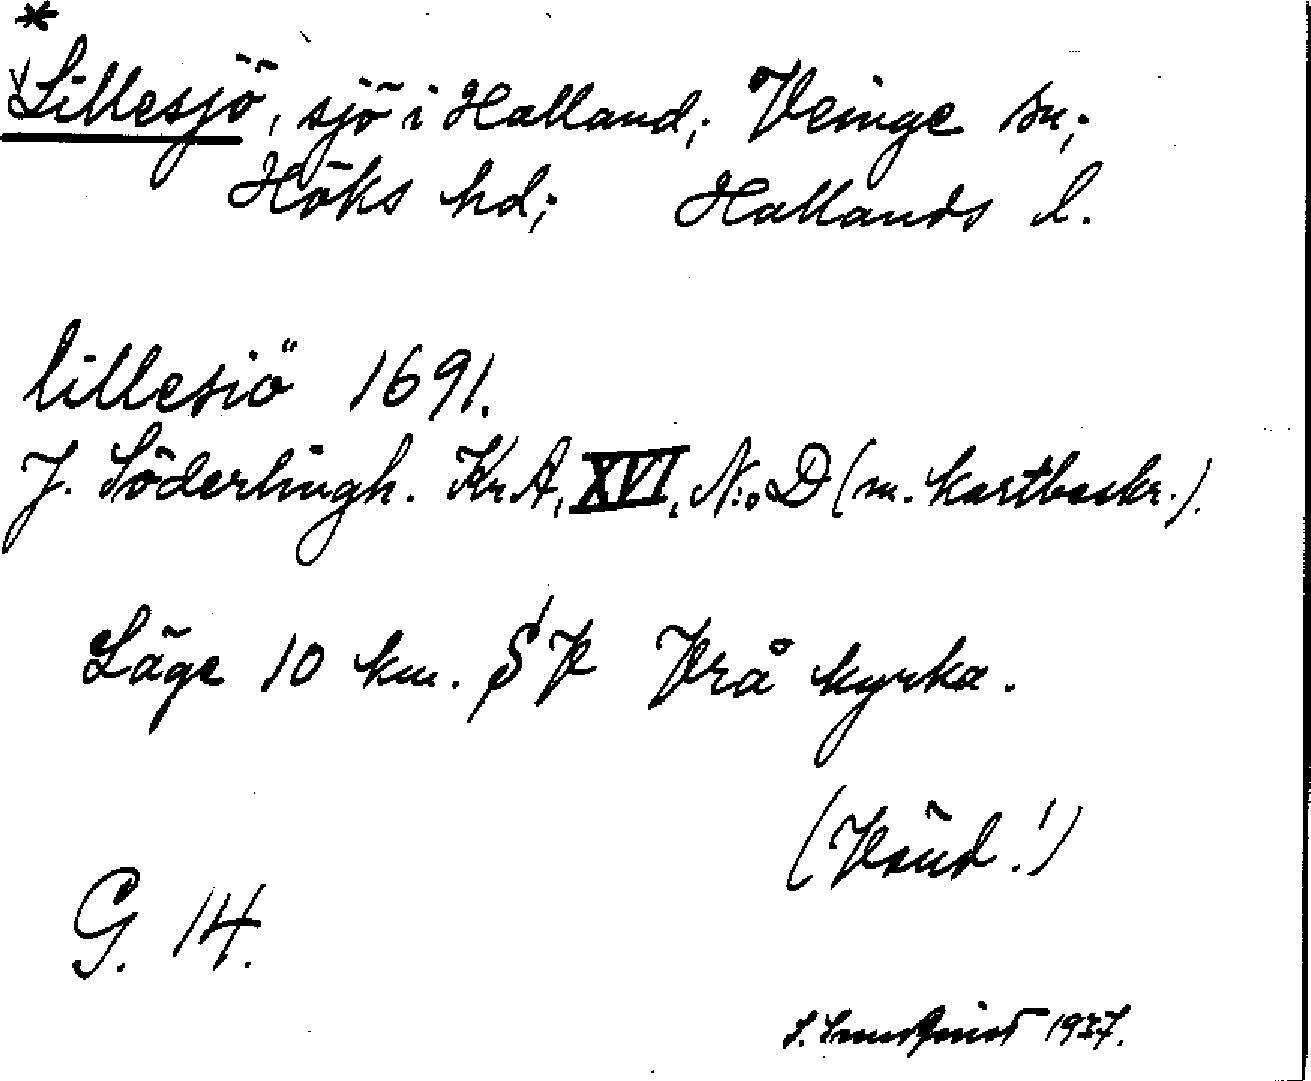 *
Lillesjö, sjö i Halland; Veinge sn;
Höks hd; Hallands l.
lillesiö 1691.
J. Söderlingh. Kr.A. XVI. N:o D (m. kartbeskr.).
Läge 10 km. SV Vrå kyrka.
(Vänd!)
G. 14.
1937.